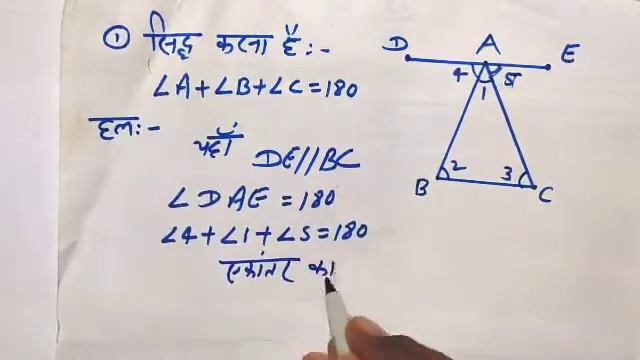 ① सिद्ध करना है :-
∠A + ∠B + ∠C = 180
हलः-
यहाँ
DE // BC
∠DAE = 180
∠4 + ∠1 + ∠5 = 180
एकांतर का
D A E
4 5
1
2 3
B C